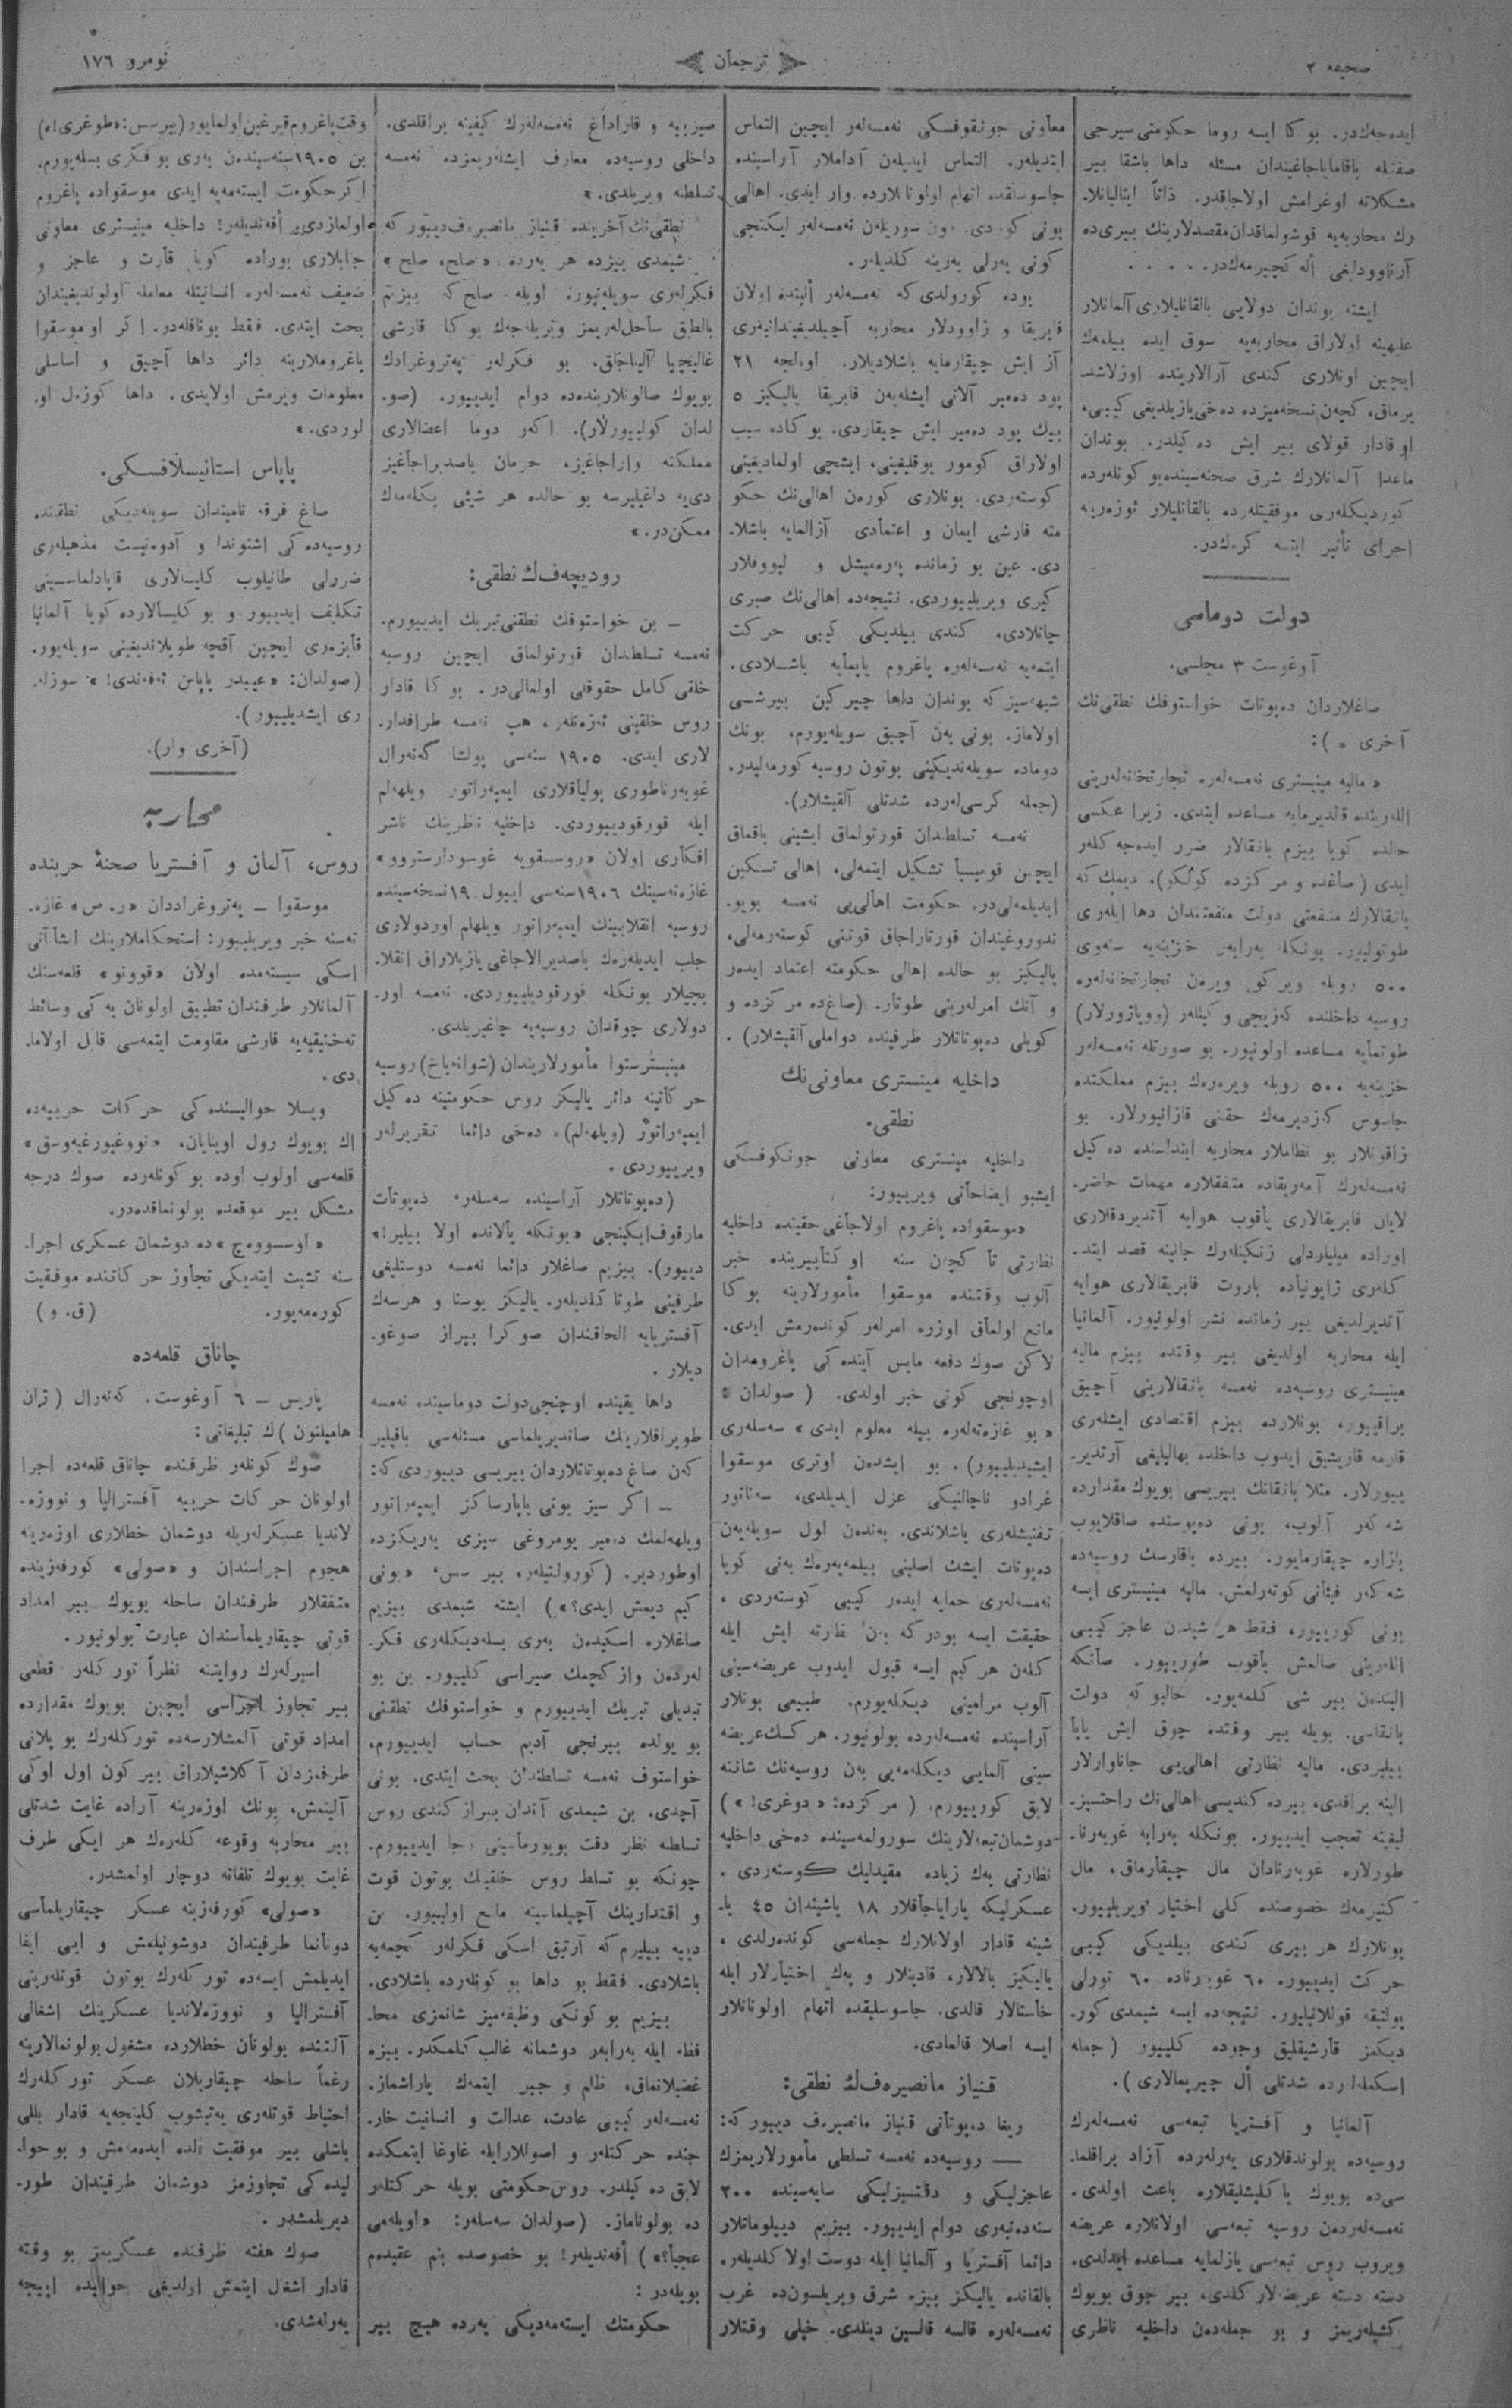 صحیفه ٢
ترجمان
نومرو ١٧٦
ایده‌جه‌كدر. بوكا ایسه روما حكومتی سیرجی
صفتله باقامایاجاغیندان مسئله داها باشقا بیر
مشكلاته اوغرامش اولاجاقدر. ذاتاً ایتالیانلا-
رك محاربه‌یه قوشولماقدان مقصدلارینك بیری‌ده
آرناوودلغی أله كچیرمه‌كدر. . . . . .
ایشته بوندان دولایی بالقانلیلاری آلمانلار
علیهینه اولاراق محاربه‌یه سوق ایده بیلمه‌ك
ایچین اونلاری كندی آرالارینده اوزلاشد-
یرماق، كچه‌ن نسخه‌میزده ده‌خی یازیلدیغی كیبی،
او قادار قولای بیر ایش ده‌كیلدر. بوندان
ماعدا آلمانلارك شرق صحنه‌سینده بو كونله‌رده
كوردیكله‌ری موفقیتله‌رده بالقانلیلار ئوزه‌رینه
اجرای تأثیر ایتسه كره‌كدر.
دولت دوماسی
آوغوست ٣ مجلسی.
صاغلاردان ده‌پوتات خواستوفك نطقی‌نك
آخری ٭):
« مالیه مینیستری نه‌مسه‌له‌ره تجارتخانه‌له‌رینی
اللرینده قالدیرمایه مساعده ایتدی. زیرا عكسی
حالده كویا بیزم بانقالار ضرر ایده‌جه كله‌ر
ایدی (صاغده و مركزده كولكو)، دیمك كه
بانقالارك منفعتی دولت منفعتندان دها ایله‌ری
طوتولیور. بونكله به‌رابه‌ر خزینه‌یه سنوی
٥٠٠ روبله ویركو ویره‌ن تجارتخانه‌له‌ره
روسیه داخلنده كه‌زیجی وكیلله‌ر (وویاژورلار)
طوتمایه مساعده اولونیور. بو صورتله نه‌مسه‌له‌ر
خزینه‌یه ٥٠٠ روبله ویره‌رك بیزم مملكتده
جاسوس كزدیرمه‌ك حقنی قازانیورلار. بو
زاقونلار بو نظاملار محاربه ابتداسنده ده‌كیل
نه‌مسه‌له‌رك آمه‌ریقاده متفقلاره مهمات حاضر-
لایان فابریقالاری یاقوب هوایه آتدیردقلاری
اوراده میلیاردلی زنكینله‌رك جانینه قصد ایتد-
كله‌ری ژاپونیاده باروت فابریقالاری هوایه
آتدیرلدیغی بیر زمانده نشر اولونیور. آلمانیا
ایله محاربه اولدیغی بیر وقتده بیزم مالیه
مینیستری روسیه‌ده نه‌مسه بانقالارینی آچیق
براقییور، بونلارده بیزم اقتصادی ایشله‌ری
قارمه قاریشیق ایدوب داخلده بهالیلیغی آرتدیر-
ییورلار. مثلا بانقانك بیریسی بویوك مقدارده
شه كه‌ر آلوب، بونی ده‌پوسنده صاقلایوب
بازاره چیقارمایور. بیرده باقارسك روسیه‌ده
شه كه‌ر فیئانی كوته‌رلمش. مالیه مینیستری ایسه
بونی كورییور، فقط هر شیدن عاجز كیبی
اللرینی صالمش باقوب طورییور. صانكه
الیندن بیر شی كلمه‌یور. حالبو كه دولت
بانقاسی. بویله بیر وقتده چوق ایش یاپا
بیلیردی. مالیه نظارتی اهالی‌یی جاناوارلار
الینه براقدی، بیرده كندیسی اهالی‌نك راحتسیز-
لیغینه تعجب ایدییور. بونكله به‌رابه غوبه‌رنا-
طورلاره غوبه‌رنادان مال چیقارماق، مال
كتیرمه‌ك خصوصنده كلی اختیار ویریلیبور.
بونلارك هر بیری كندی بیلدیكی كیبی
حركت ایدییور. ٦٠ غوبرناده ٦٠ تورلی
پولتیقه قوللانیلیور. نتیجه‌ده ایسه شیمدی كور-
دیكمز قارشیقلیق وجوده كلییور (جمله
اسكمله‌لرده شدتلی أل چیرپمالاری).
آلمانیا و آفستریا تبعه‌سی نه‌مسه‌له‌رك
روسیه‌ده بولوندقلاری یه‌رله‌رده آزاد براقلما-
سی‌ده بویوك یاكلیشلیقلاره باعث اولدی.
نه‌مسه‌له‌رده‌ن روسیه تبعه‌سی اولانلاره عریضه
ویروب روس تبعه‌سی یازلمایه مساعده ایدلدی.
دسته دسته عریضه‌لار كلدی، بیر چوق بویوك
كشیله‌ریمز و بو جمله‌ده‌ن داخلیه ناظری
معاونی جونقوفسكی نه‌مسه‌له‌ر ایچین التماس
ایتدیله‌ر. التماس ایدیله‌ن آداملار آراسینده
جاسوسلقده اتهام اولونانلارده وار ایدی. اهالی
بونی كوردی. دون سوریله‌ن نه‌مسه‌له‌ر ایكنجی
كونی یه‌رلی یه‌رینه كلدیله‌ر.
بوده كورولدی كه نه‌مسه‌له‌ر ألینده اولان
فابریقا و زاوودلار محاربه آچیلدیغیندانبه‌ری
آز ایش چیقارمایه باشلادیلار. اوه‌لجه ٢١
پود ده‌میر آلانی ایشله‌یه‌ن فابریقا یالیكیز ٥
بیك پود ده‌میر ایش چیقاردی. بو كاده سبب
اولاراق كومور یوقلیغینی، ایشچی اولمادیغینی
كوسته‌ردی. بونلاری كوره‌ن اهالی‌نك حكو
مته قارشی ایمان و اعتمادی آزالمایه باشلا-
دی. عین بو زمانده په‌ره‌میشل و لیووفلار
كیری ویریلییوردی. نتیجه‌ده اهالی‌نك صبری
چاتلادی، كندی بیلدیكی كیبی حركت
ایتمه‌یه نه‌مسه‌له‌ره پاغروم یاپمایه باشلادی.
شبهه‌سیزكه بوندان داها چیركین بیرشی
اولاماز. بونی به‌ن آچیق سویله‌یورم، بونك
دوماده سویله‌ندیكینی بوتون روسیه كورمه‌لیدر.
(جمله كرسی‌له‌رده شدتلی آلقیشلار).
نه‌مسه تسلطندان قورتولماق ایشینی باقماق
ایچین قومیسیا تشكیل ایتمه‌لی، اهالی تسكین
ایدیلمه‌لی‌در. حكومت اهالی‌یی نه‌مسه بویو-
ندوروغیندان قورتاراجاق قوتنی كوسته‌رمه‌لی،
یالیكیز بو حالده اهالی حكومته اعتماد ایده‌ر
و آنك امرله‌رینی طوتار. (صاغده مركزده و
كویلی ده‌پوتاتلار طرفینده دواملی آلقیشلار).
داخلیه مینستری معاونی‌نك
نطقی.
داخلیه مینستری معاونی جونكوفسكی
ایشبو ایضاحاتی ویرییور:
«موسقواده پاغروم اولاجاغی حقینده داخلیه
نظارتی تا كچه‌ن سنه اوكتابیریند‌ه خبر
آلوب وقتنده موسقوا مأمورلارینه بوكا
مانع اولماق اوزره امرله‌ر كونده‌رمش ایدی.
لاكن صوك دفعه مایس آینده‌كی پاغرومدان
اوچونجی كونی خبر اولدی. (صولدان:
«بو غازه‌ته‌له‌ره بیله معلوم ایدی» سه‌سله‌ری
ایشیدیلییور). بو ایشدن اوتری موسقوا
غرادو ناچالنیكی عزل ایدیلدی، سه‌ناتور
تفتیشله‌ری باشلاندی. به‌نده‌ن اول سویله‌یه‌ن
ده‌پوتات ایشك اصلینی بیلمه‌یه‌رك به‌نی كویا
نه‌مسه‌له‌ری حمایه ایده‌ر كیبی كوسته‌ردی،
حقیقت ایسه بودركه به‌ن نظارته ایش ایله
كله‌ن هركیم ایسه قبول ایدوب عریضه‌سینی
آلوب مرامینی دیكله‌یورم. طبیعی بونلار
آراسینده نه‌مسه‌له‌رده بولونیور. هر كسك عریضه
سینی آلمایی دیكله‌مه‌یی به‌ن روسیه‌نك شاننه
لایق كورییورم. (مركزده: «دوغری!»)
دوشمان تبعه‌لارینك سورولمه‌سینده ده‌خی داخلیه
نظارتی یه‌ك زیاده مقیدلیك كوسته‌ردی.
عسكرلیكه یارایاجاقلار ١٨ یاشیندان ٤٥ یا-
شینه قادار اولانلارك جمله‌سی كونده‌رلدی،
یالیكیز بالالار، قادینلار و په‌ك اختیارلار ایله
خاستالار قالدی. جاسوسلیقده اتهام اولونانلار
ایسه اصلا قالمادی.
قنیاز مانصیره‌ف‌ك نطقی:
ریغا ده‌پوتاتی قنیاز مانصیره‌ف دییوركه:
— روسیه‌ده نه‌مسه تسلطی مأمورلاریمزك
عاجزلیكی و دقتسیزلیكی سایه‌سینده ٢٠٠
سنه‌ده‌نبه‌ری دوام ایدییور. بیزیم دیپلوماتلار
دائما آفستریا و آلمانیا ایله دوست اولا كلدیله‌ر.
بالقانده یالیكز بیزه شرق ویریلسون‌ده غرب
نه‌مسه‌له‌ره قالسه قالسین دینلدی. خیلی وقتلار
صیربیه و قاراداغ نه‌مسه‌له‌رك كیفینه براقلدی.
داخلی روسیه‌ده معارف ایشله‌ریمزده نه‌مسه
تسلطنه ویریلدی.»
نطقی‌نك آخرینده قنیاز مانصیره‌ف دییور كه
شیمدی بیزده هر یه‌رده «صلح، صلح»
فكرله‌ری سویله‌نیور: اویله صلح كه بیزیم
بالطق ساحل‌له‌ریمز ویریله‌جه‌ك بوكا قارشی
غالیچیا آلیناجاق. بو فكرله‌ر په‌تروغرادك
بویوك صالونلارینده‌ده دوام ایدییور. (صو-
لدان كولییورلار). اكه‌ر دوما اعضالاری
مملكتنه واراجاغیز، خرمان باصدیراجاغیز
دییه داغیلیرسه بو حالده هر شیئی بكله‌مه‌ك
ممكن‌در.»
رودیچه‌ف‌ك نطقی:
— بن خواستوفك نطقنی تبریك ایدییورم.
نه‌مسه تسلطندان قورتولماق ایچین روسیه
خلقی كامل حقوقلی اولمالی‌در. بوكا قادار
روس خلقینی ئه‌زه‌نله‌ر، هپ نه‌مسه طرافدار-
لاری ایدی. ١٩٠٥ سنه‌سی پولشا گه‌نه‌رال
غوبه‌رناطوری پولیاقلاری ایمپه‌راتور ویلهه‌لم
ایله قورقودییوردی. داخلیه نظرینك ناشر
افكاری اولان «روسسقویه غوسودارستوو»
غازه‌ته‌سینك ١٩٠٦ سنه‌سی اییول ١٩ نسخه‌سینده
روسیه انقلابینك ایمپه‌راتور ویلهلم اوردولاری
جلب ایدیله‌ره‌ك باصدیرالاجاغی یازیلاراق انقلا-
بجیلار بونكله قورقودیلییوردی. نه‌مسه اور-
دولاری چوقدان روسیه‌یه چاغیریلدی.
مینیسترستوا مأمورلاریندان (شوانه‌باخ) روسیه
حركاتینه دائر یالیكز روس حكومتینه ده‌كیل
ایمپه‌راتور (ویلهه‌لم)ه ده‌خی دائما تقریرله‌ر
ویرییوردی.
(ده‌پوتاتلار آراسینده سه‌سله‌ر، ده‌پوتات
مارقوف ایكینجی «بونكله یالانده اولا بیلیر!»
دییور). بیزیم صاغلار دائما نه‌مسه دوستلیغی
طرفینی طوتا كلدیله‌ر. یالیكز بوسنا و هرسه‌ك
آفستریایه الحاقندان صوكرا بیراز صوغو-
دیلار.
داها یقینده اوچنجی دولت دوماسینده نه‌مسه
طوپراقلارینك صاتدیریلماسی مسئله‌سی باقیلیر
كه‌ن صاغ ده‌پوتاتلاردان بیریسی دییوردی كه:
— اكر سیز بونی یاپارساكز ایمپه‌راتور
ویلهه‌لمك ده‌میر یومروغی سیزی یه‌ریكزده
اوطوردیر. (كورولتیله‌ر، بیر سس، «بونی
كیم دیمش ایدی؟») ایشته شیمدی بیزیم
صاغلاره اسكیده‌ن به‌ری بسله‌دیكله‌ری فكر-
له‌رده‌ن واز كچمك صیراسی كلییور. بن بو
تبدیلی تبریك ایدییورم و خواستوفك نطقنی
بو یولده بیرنجی آدیم حساب ایدییورم،
خواستوف نه‌مسه تسلطندان بحث ایتدی. بونی
آچدی. بن شیمدی آندان بیراز كندی روس
تسلطنه نظر دقت بویورماسینی رجا ایدییورم.
چونكه بو تسلط روس خلقینك بوتون قوت
و اقتدارینك آچیلماسینه مانع اولییور. بن
دییه بیلیرم كه آرتیق اسكی فكرله‌ر كچمه‌یه
باشلادی. فقط بو داها بو كونله‌رده باشلادی.
بیزیم بو كونكی وظیفه‌میز شانمزی محا-
فظه ایله به‌رابه‌ر دوشمانه غالب كلمكدر. بیزه
غضبلانماق، ظلم و جبر ایتمه‌ك یاراشماز.
نه‌مسه‌له‌ر كیبی عادت، عدالت و انسانیت خار-
جنده حركتله‌ر و اصوللارایله غاوغا ایتمكده
لایق ده‌كیلدر. روس حكومتی بویله حركتله‌ر
ده بولوناماز. (صولدان سه‌سله‌ر: «اویله‌می
عجبا؟») أفه‌ندیله‌ر! بو خصوصده بنم عقیده‌م
بویله‌در:
حكومتك ایسته‌مه‌دیكی یه‌رده هیچ بیر
وقت پاغروم قیرغین اولمایور (بیر سس: «طوغری!»)
بن ١٩٠٥ سنه‌سینده‌ن به‌ری بو فكری بسله‌یورم.
اكر حكومت ایسته‌مه‌یه ایدی موسقواده پاغروم
اولمازدی. أفه‌ندیله‌ر! داخلیه مینیستری معاونی
جنابلاری بوراده كویا قارت و عاجز و
ضعیف نه‌مسه‌له‌ره انسانیتله معامله اولوندیغیندان
بحث ایتدی. فقط بوناقله‌در. اكر او موسقوا
پاغروملارینه دائر داها آچیق و اساسلی
معلومات ویرمش اولایدی. داها كوزه‌ل او-
لوردی.»
پاپاس استانیسلافسكی.
صاغ فرقه نامیندان سویله‌دیكی نطقنده
روسیه‌ده‌كی اشتوندا و آدوه‌نیست مذهبله‌ری
ضررلی طانیلوب كلیسالاری قاپادلماسینی
تكلیف ایدییور و بو كلیسالارده كویا آلمانیا
قایزه‌ری ایچین آقچه طوپلاندیغینی سویله‌یور.
(صولدان: «عیبدر پاپاس ئه‌فه‌ندی!» سوزله-
ری ایشیدیلییور).
(آخری وار).
محاربه
روس، آلمان و آفستریا صحنهٔ حربنده
موسقوا — په‌تروغراددان «ر. ص» غازه-
ته‌سنه خبر ویریلییور: استحكاملارینك انشاآتی
اسكی سیسته‌مده اولان «قوونو» قلعه‌سنك
آلمانلار طرفندان تطبیق اولونان یه‌كی وسائط
ته‌خنیقیه‌یه قارشی مقاومت ایتمه‌سی قابل اولاما-
دی.
ویسلا حوالیسنده‌كی حركات حربیه‌ده
اك بویوك رول اوینایان، «نووغیورغیه‌وسق»
قلعه‌سی اولوب اوده بو كونله‌رده صوك درجه
مشكل بیر موقعده بولونماقده‌در.
«اوسسووه‌چ»ده دوشمان عسكری اجرا-
سنه تشبث ایتدیكی تجاوز حركاتنده موفقیت
كوره‌مه‌یور. (ق. و)
چاناق قلعه‌ده
پاریس — ٦ آوغوست. كه‌نه‌رال (ژان
هامیلتون)ك تبلیغاتی:
صوك كونله‌ر ظرفنده چاناق قلعه‌ده اجرا
اولونان حركات حربیه آفسترالیا و نووزه-
لاندیا عسكرله‌ریله دوشمان خطلاری اوزه‌رینه
هجوم اجراسندان و «صولی» كورفه‌زینده
متفقلار طرفندان ساحله بویوك بیر امداد
قوتی چیقاریلماسندان عبارت بولونیور.
اسیرله‌رك روایتنه نظراً توركله‌ر قطعی
بیر تجاوز اجراسی ایچین بویوك مقدارده
امداد قوتی آلمشلارسه‌ده توركله‌رك بو پلانی
طرفمزدان آكلاشیلاراق بیر كون اول اوكی
آلینمش، بونك اوزه‌رینه آراده غایت شدتلی
بیر محاربه وقوعه كله‌ره‌ك هر ایكی طرف
غایت بویوك تلفاته دوچار اولمشدر.
«صولی» كورفه‌زینه عسكر چیقاریلماسی
دونانما طرفیندان دوشونیلمش و ایی ایفا
ایدیلمش ایسه‌ده توركله‌رك بوتون قوتله‌رینی
آفسترالیا و نووزه‌لاندیا عسكرینك اشغالی
آلتنده بولونان خطلارده مشغول بولونمالارینه
رغماً ساحله چیقاریلان عسكر توركله‌رك
احتیاط قوتله‌ری یه‌تیشوب كلینجه‌یه قادار بللی
باشلی بیر موفقیت ألده ایده‌مه‌مش و بو حوا-
لیده‌كی تجاوزمز دوشمان طرفیندان طور-
دیریلمشدر.
صوك هفته ظرفنده عسكریمز بو وقته
قادار اشغال ایتمش اولدیغی حوالیده اییجه
یه‌رله‌شدی.